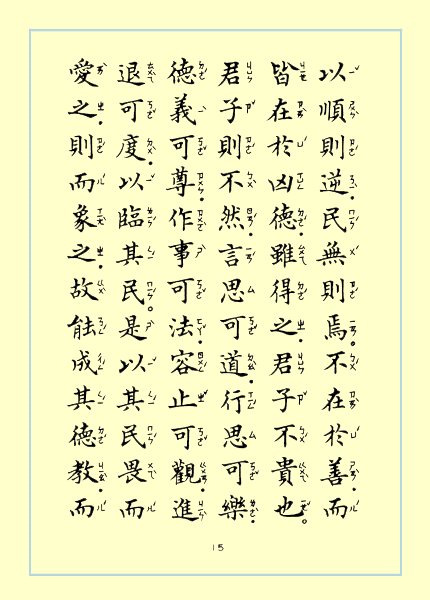 以順則逆．民無則焉。不在於善．而
皆在於凶德．雖得之．君子不貴也。
君子則不然．言思可道．行思可樂．
德義可尊．作事可法．容止可觀．進
退可度．以臨其民。是以其民畏而
愛之．則而象之．故能成其德教．而
15